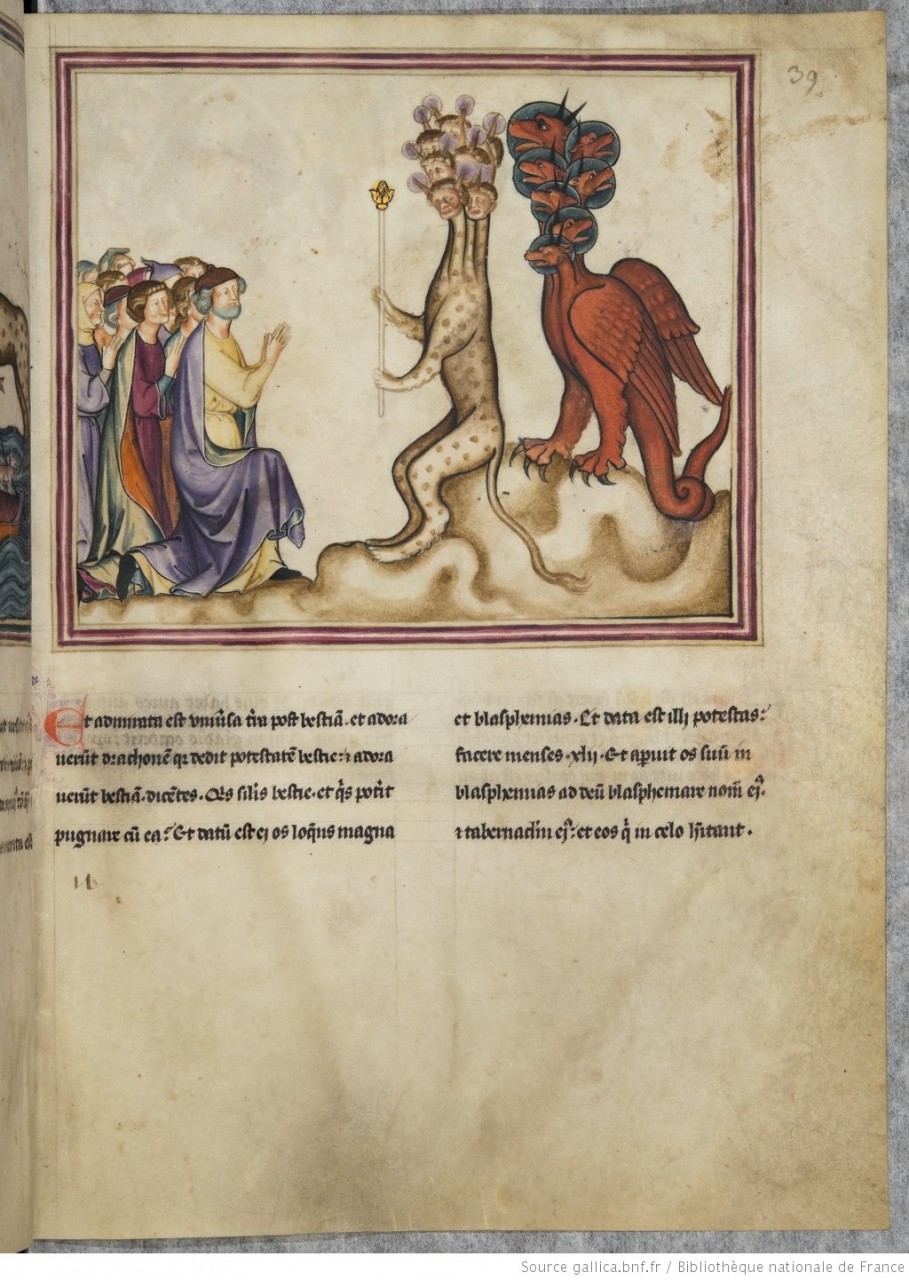 39
Et admirata est vniũsa tr̃a post bestiã. et adora
uerũt drachonẽ qꝛ dedit potestatẽ bestie: ⁊ adora
uerũt bestiã. dicẽtes. Q̃s sil̃is bestie. et q̃s pot̃it
pugnare cũ ea? Et datũ est ei os loq̃ns magna
et blasphemias. Et data est illi potestas:
facere menses .xlii. Et aꝑuit os suũ in
blasphemias ad deũ blasphemare nom̃ eiꝰ.
⁊ tabernacl̃m eiꝰ: et eos q̇ in celo h̃itant.
Source gallica.bnf.fr / Bibliothèque nationale de France